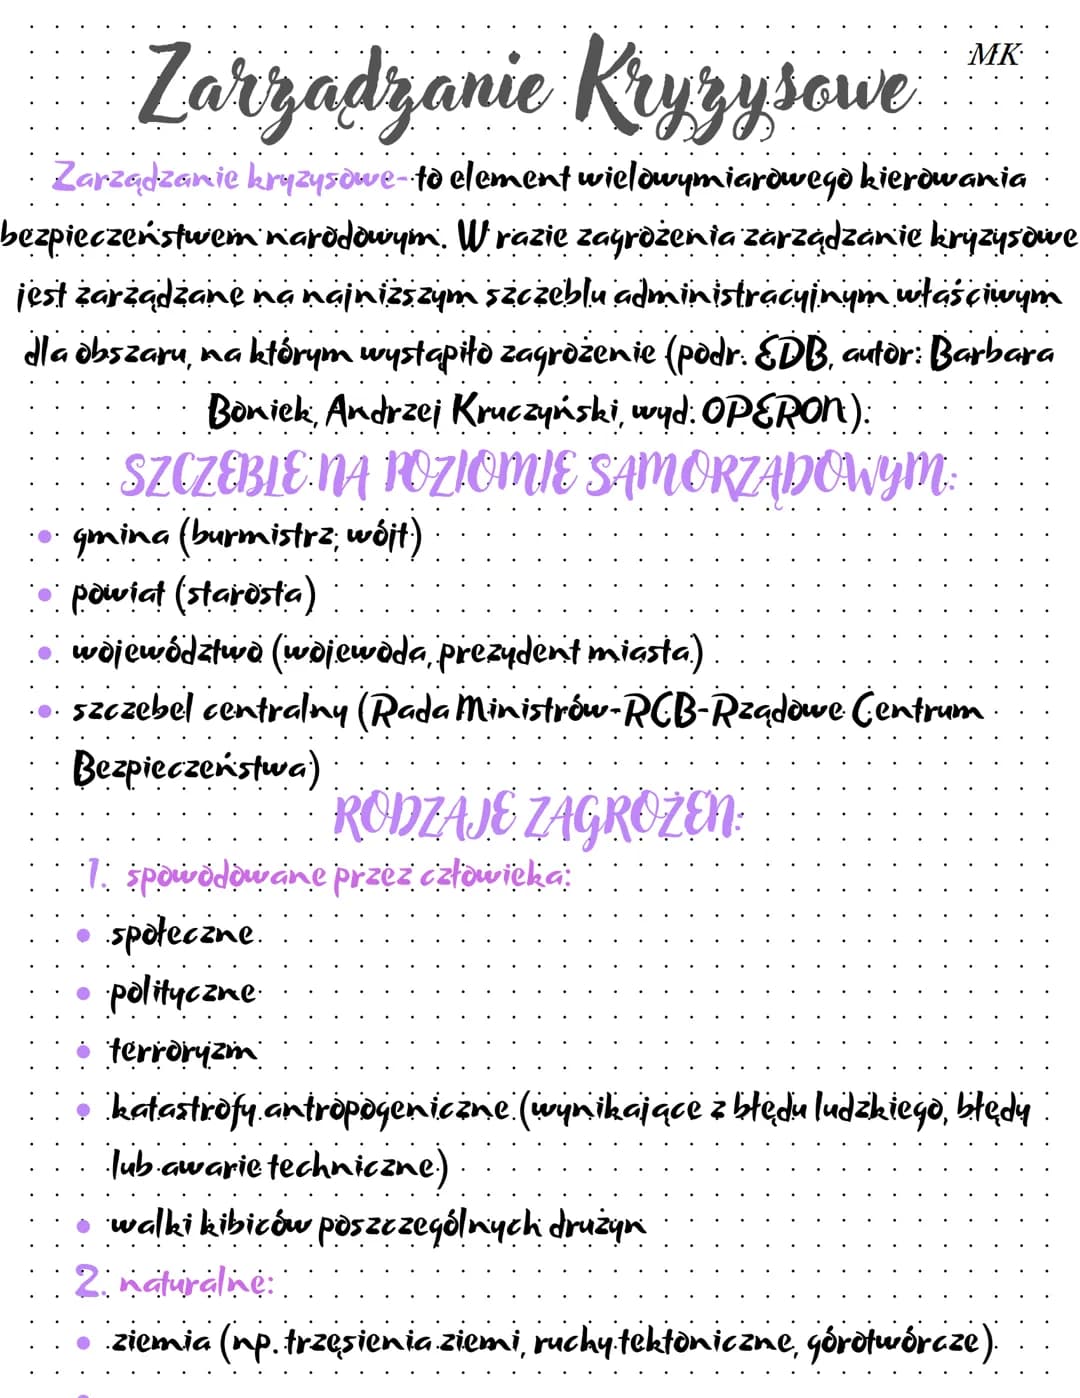 Zarządzanie Kryzysowe
MK
Zarządzanie kryzysowe- to element wielowymiarowego kierowania
bezpieczeństwem narodowym. W razie zagrożenia zarządzanie kryzysowe
jest zarządzane na najniższym szczeblu administracyjnym właściwym
dla obszaru, na którym wystąpiło zagrożenie (podr. EDB, autor: Barbara
Boniek, Andrzej Kruczyński, wyd. OPERON).
SZCZEBLE NA POZIOMIE SAMORZĄDOWYM:
• gmina (burmistrz, wójt)
• powiat (starosta)
• województwo (wojewoda, prezydent miasta)
• szczebel centralny (Rada Ministrów-RCB-Rządowe Centrum
Bezpieczeństwa)
RODZAJE ZAGROŻEŃ:
1. spowodowane przez człowieka:
• społeczne
• polityczne
• terroryzm
• katastrofy antropogeniczne (wynikające z błędu ludzkiego, błędy
lub awarie techniczne)
• walki kibiców poszczególnych drużyn
2. naturalne:
• ziemia (np. trzęsienia ziemi, ruchy tektoniczne, górotwórcze)